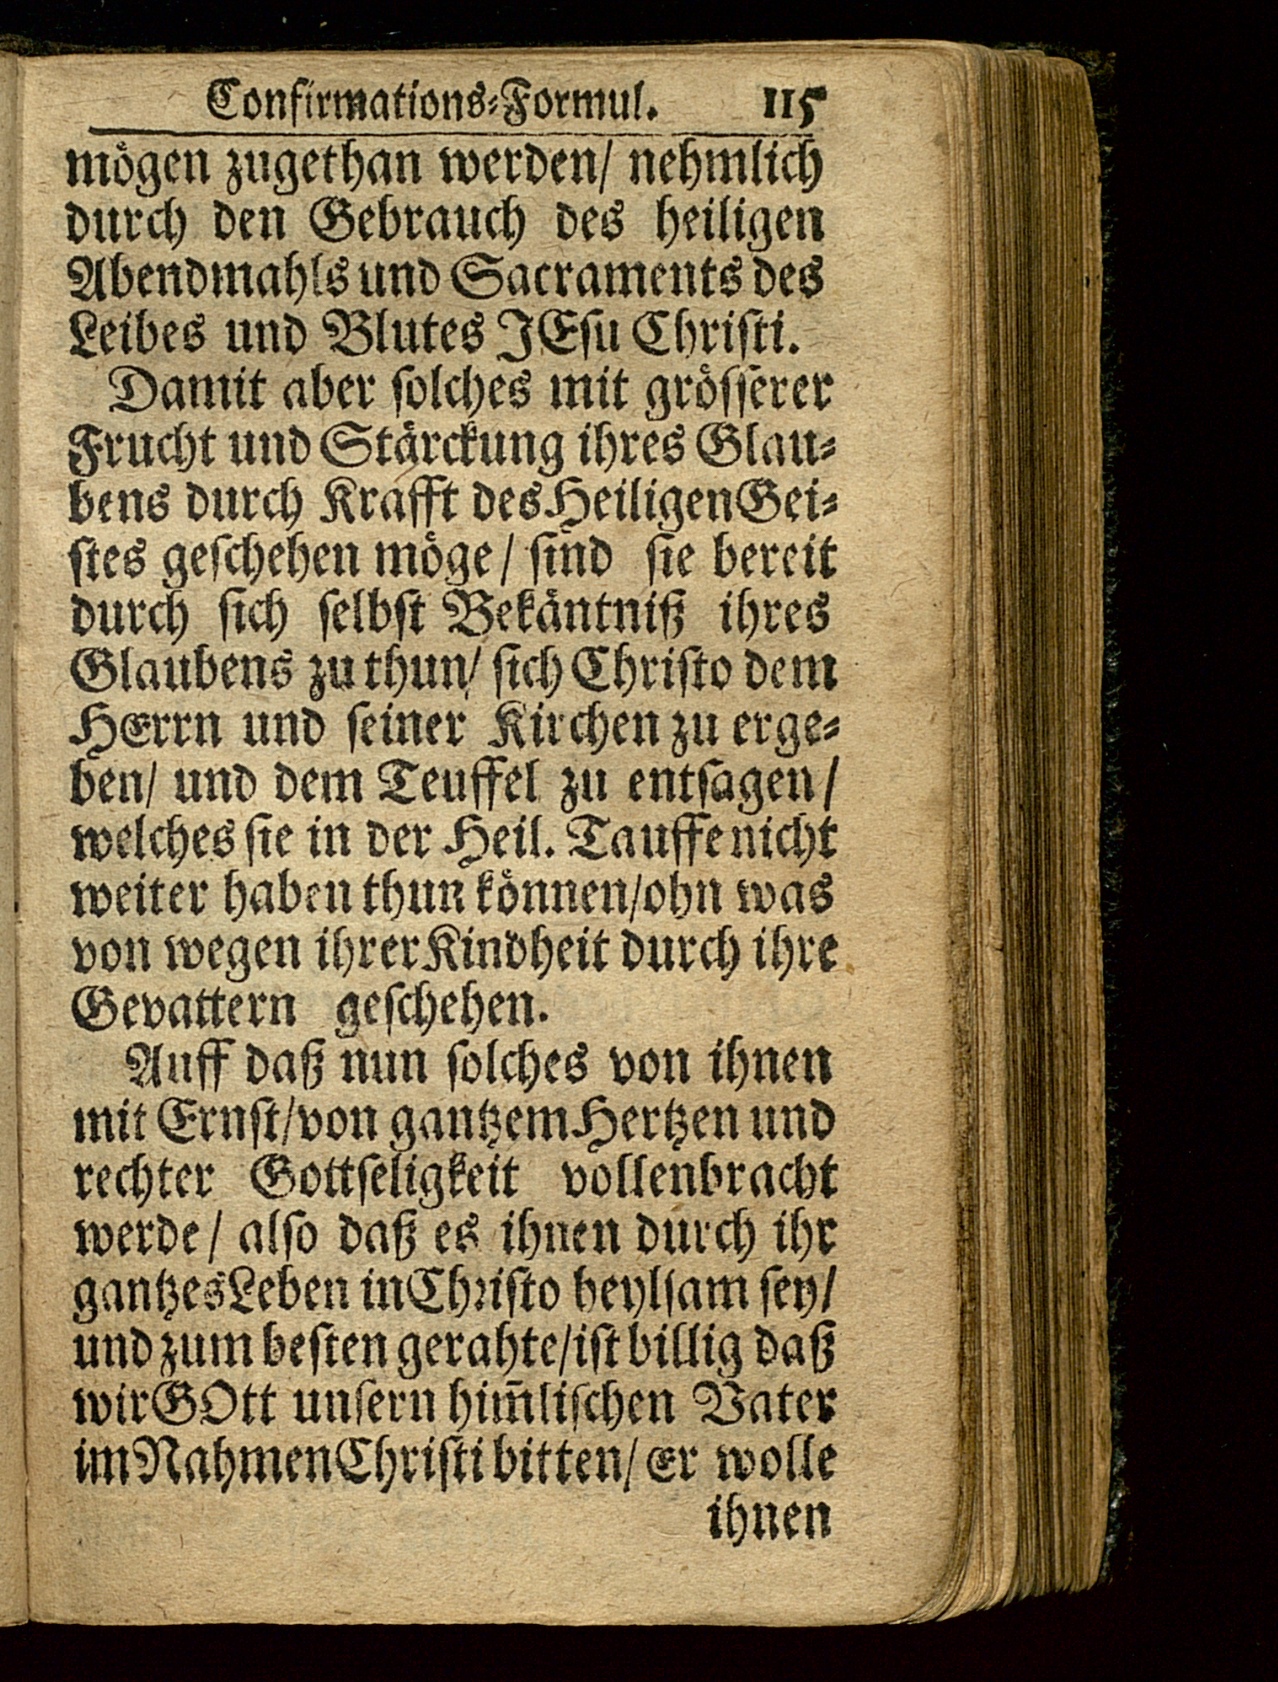 Confirmations-Formul. 115
mögen zugethan werden/ nehmlich
durch den Gebrauch des heiligen
Abendmahls und Sacraments des
Leibes und Blutes JEsu Christi.
Damit aber solches mit grösserer
Frucht und Stärckung ihres Glau-
bens durch Krafft des Heiligen Gei-
stes geschehen möge/ sind sie bereit
durch sich selbst Bekäntniß ihres
Glaubens zu thun/ sich Christo dem
HErrn und seiner Kirchen zu erge-
ben/ und dem Teuffel zu entsagen/
welches sie in der Heil. Tauffe nicht
weiter haben thun können/ ohn was
von wegen ihrer Kindheit durch ihre
Gevattern geschehen.
Auff daß nun solches von ihnen
mit Ernst/ von gantzem Hertzen und
rechter Gottseligkeit vollenbracht
werde/ also daß es ihnen durch ihr
gantzes Leben in Christo heylsam sey/
und zum besten gerahte/ ist billig daß
wir GOtt unsern him̄lischen Vater
im Nahmen Christi bitten/ Er wolle
ihnen